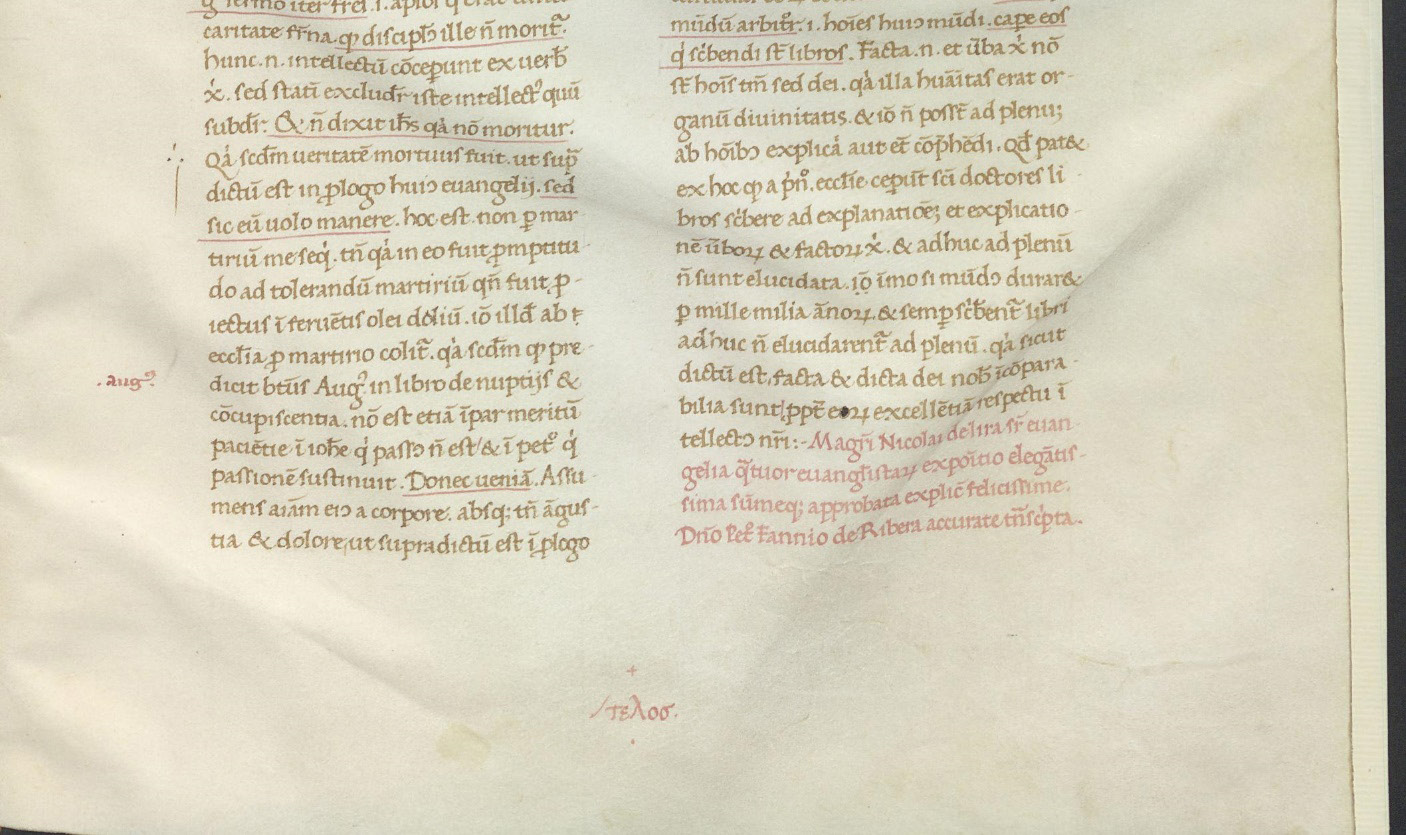 caritate fr̄na. qꝫ discipl'ꝰ ille n̄ morit᷑.
hunc .n. intellectū cōceperunt ex uerb̄
x̓. sed statī excludr̄ iste intellectꝰ quū
subdr̄: & n̄ dixit ih̄s qȧ nō moritur.
Qȧ scd̄m ueritatē mortuus fuit. ut sup̄
dictū est in ꝓlogo huiꝰ euangelij. sed
sic eū uolo manere. hoc est. non ꝑ mar
tiriū me seq̇. tn̄ qȧ in eo fuit ꝓmptitu-
do ad tolerandū martiriū qn̄ fuit ꝓ-
iectus ī feruētis olei doliū. iō illd̄ ab
eccl̄ia ꝓ martirio colit᷑. qȧ scd̄m qꝫ pre-
.augꝰ.
dicit bt̄us Augꝰ in libro de nuptijs &
cōcupiscentia. nō est etiā īpar meritū
paciētie ī ioh̄e q̇ passꝰ n̄ est / & ī petꝰ q̇
passionē sustinuit. Donec ueniā. Assu-
mens aīam eiꝰ a corpore. absqꝫ tn̄ āgus-
tia & dolore, ut supradictū est ī ꝓlogo
mūdū arbitr̄. i. hoīes huiꝰ mūdi. cape eos
q̇ scb̄endi st̄ libros. Facta .n. et ūba x̓ nō
st̄ hoīs tm̄ sed dei. qȧ illa huāitas erat or-
ganū diuinitatis. & iō n̄ poss̄t ad plenuꝫ
ab hōibꝰ explicȧ aut et̄ cōp̄hēdi. Qd̄ pat&
ex hoc qꝫ a ṗnꝰ. eccl̄ie ceper̄ut sc̄i doctores li-
bros scb̄ere ad explanatiōeꝫ et explicatio-
nē ūboꝝ & factoꝝ x̓. & adhuc ad plenū
n̄ sunt elucidata. iō īmo si mūdꝰ durar&
ꝑ mille milia ānoꝝ. & semꝑ scb̄ent᷑ libri
adhuc n̄ elucidarent᷑ ad plenū. qȧ sicut
dictū est, facta & dicta dei nob̄ īcōpara-
bilia sunt ꝓpt̄ eoꝝ excellētiā respectu ī
tellectꝰ nr̄i:- Magr̄i Nicolai de lira sr̄ euan
gelia q̄tuor euangl̄istaꝝ expoītio elegātis-
sima sūmeqꝫ approbata explic̄ felicissime.
Dn̄o Pet̄ Fannio de Ribera accurate tn̄sc̄pta.
τελοσ.